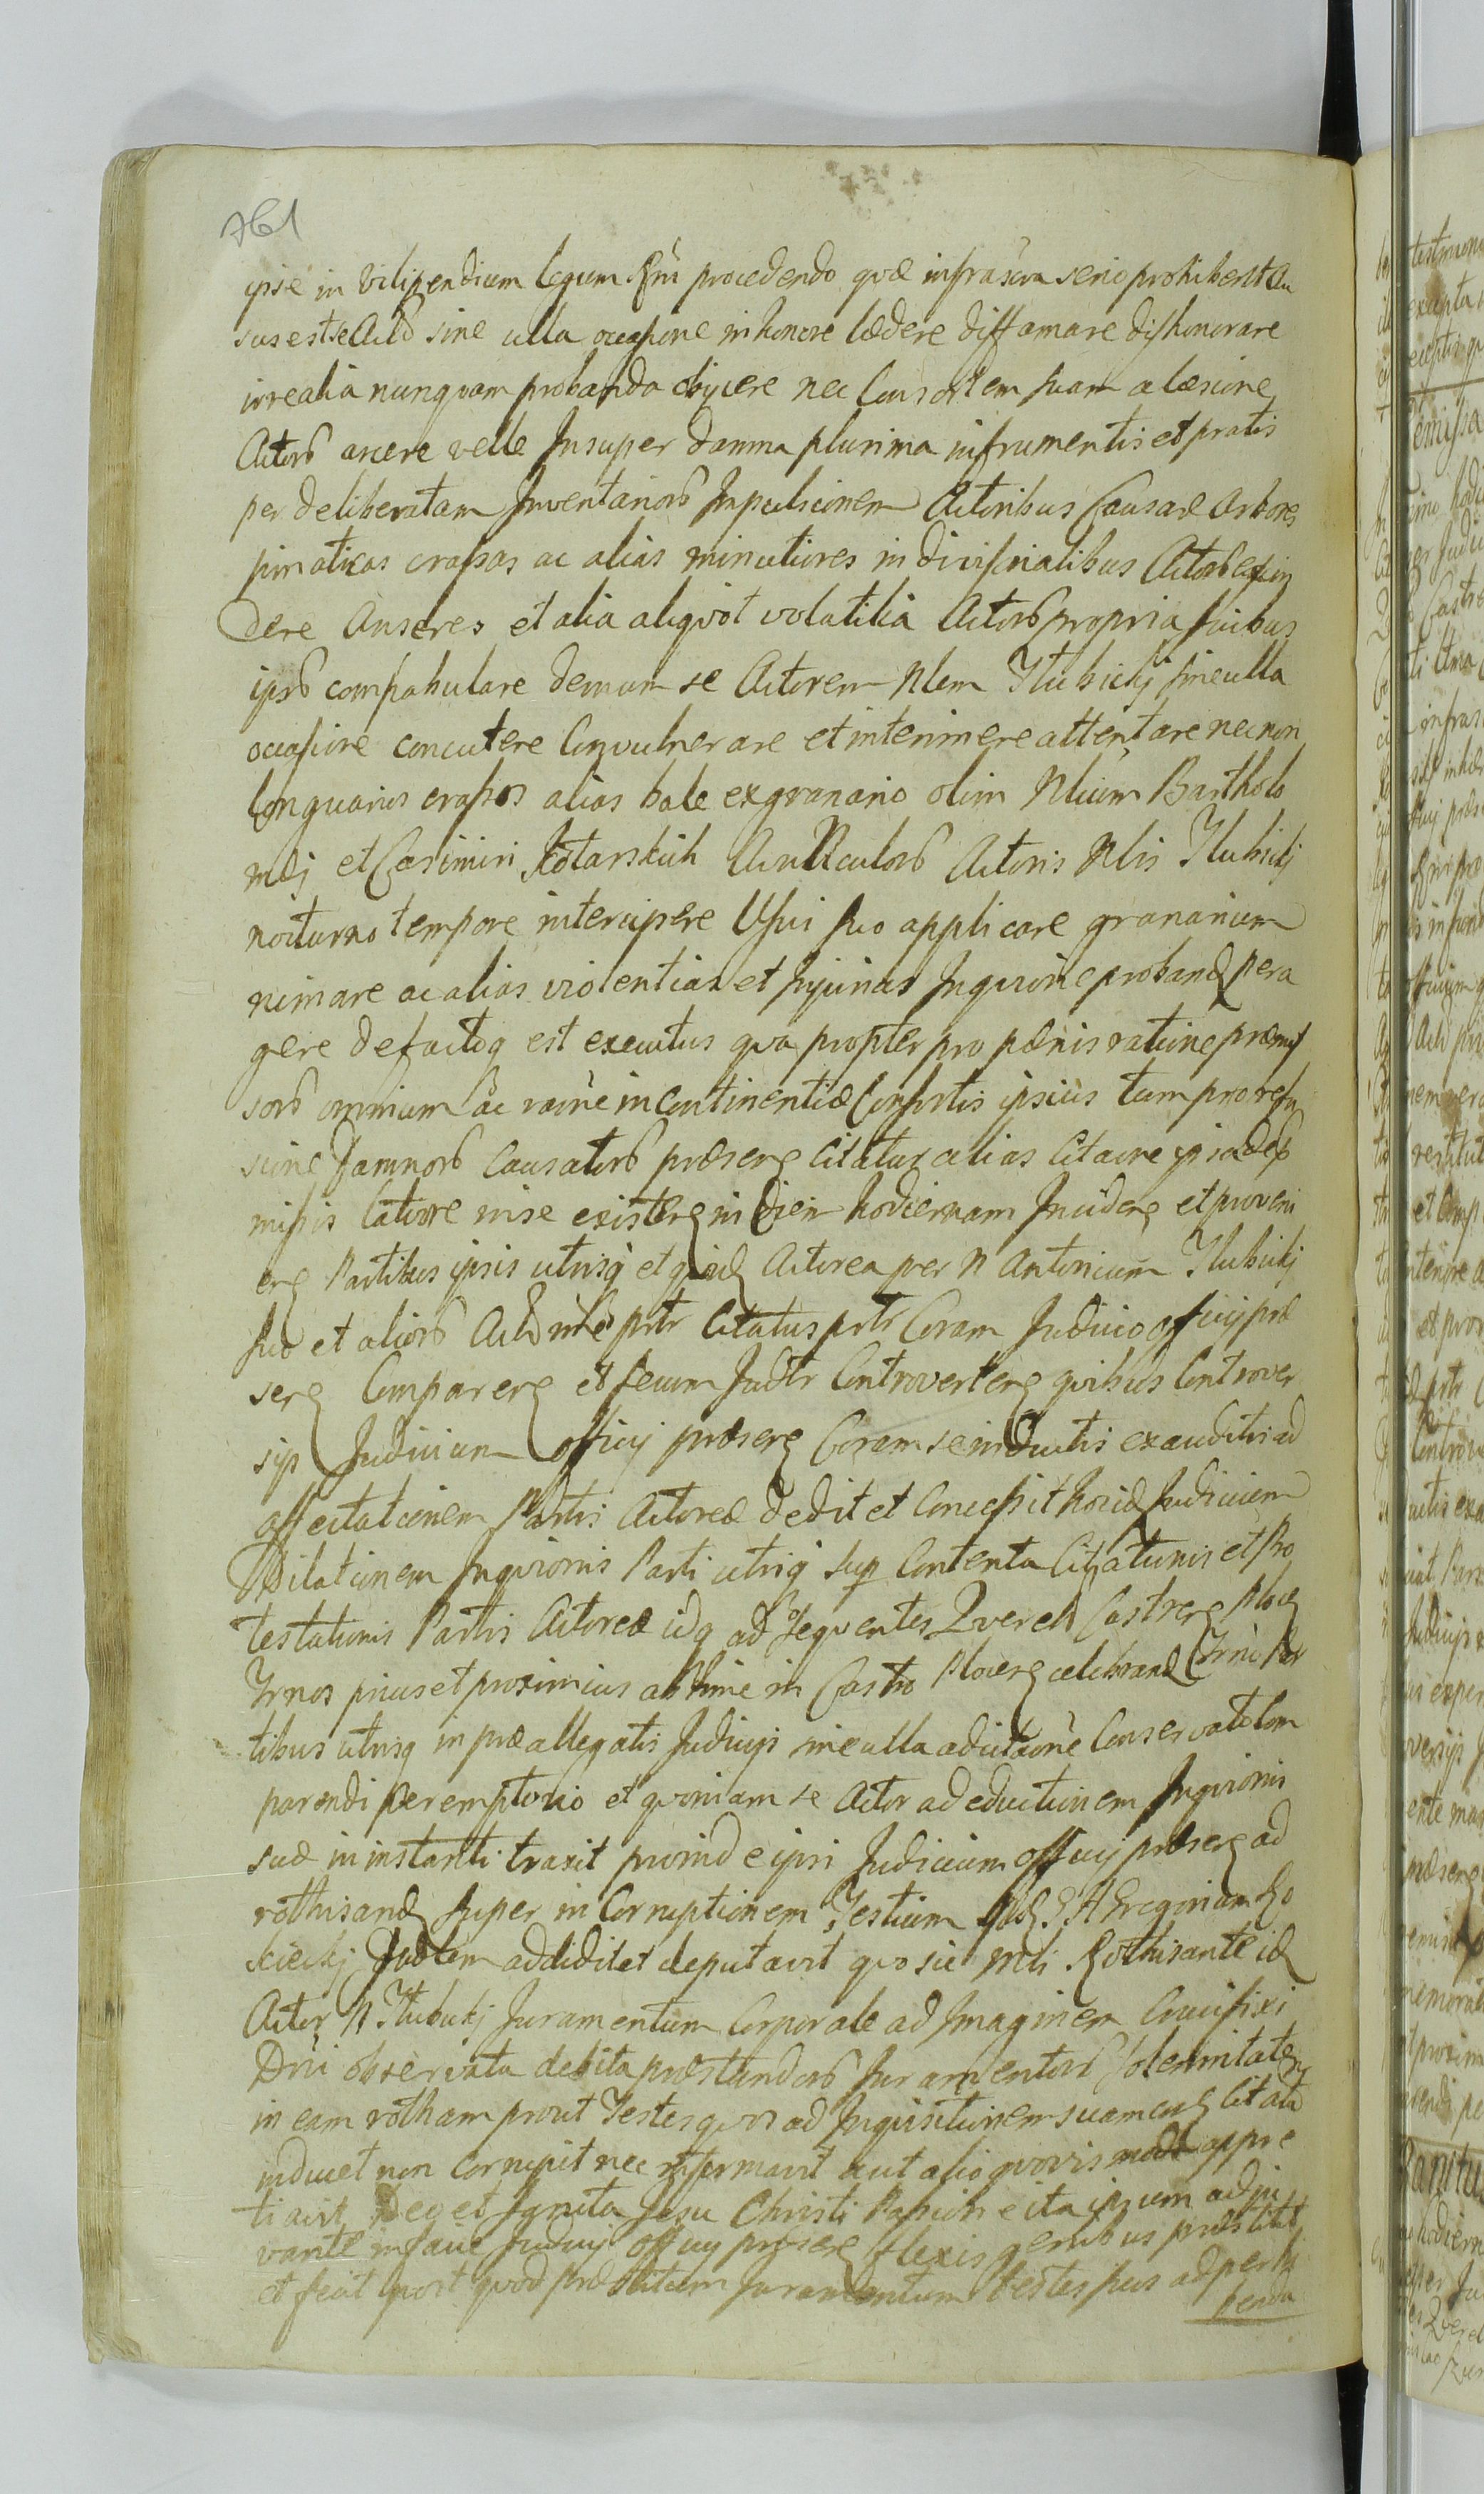 761
ipse in vilipendium legum Rni procedendo quæ infrascra serio prohibent au
sus est se Actd sine ulla occasione in honore lædere diffamare dishonorare
irrealia nunquam probanda obijcere nec Consortem suam a læsione
Actorb arcere velle Insuper damna plurima in frumentis et pratis
per deliberatam Inventariorb Impulsionem Actoribus Causare Arbores
pinaticas crassas ac alias minutiores in divisnialibus Actorb
dere Anseres et alia aliquot volatilia Actorb propria suibus
ipsorb compabulare demum se Actorem Nlem Hubickj sine ulla
occasione concutere Convulnerare et interimere attentare necnon
longuarios crassos alias bale ex granario olim Nlium Bartholo
mæj et Casimiri Kotarskich Avunculorb Actoris Nlis Hubickj
nocturno tempore intercipere Usui suo applicare granarium
rimare ac alias violentias et Injurias Inquirõne proband pera
gere de factoq est executus qua propter pro pænis ratione præmis
sorb omnium ac raõne incontinentiæ Consortis ipsius tum pro refu
sione Damnorb causatorb præsens Citatur alias Citaõne ipsa de
missis latiore in se existens in diem hodiernam Incidens et proveni
ens Partibus ipsis utrisq et quid Actorea per N Antonium Hubickj
suo et aliorb Actd nõe prtr Citatus prtr Coram Judicio officij præ
sens Comparens et secum Judtr Controvertens quibus Controver
sijs Judicium officij præsens Coram se inductis exauditis ad
affectationem Partis Actoreæ dedit et Concessit hocid Judicium
Dilationem Inquirõnis Parti utriq sup Contenta Citationis et Pro
testationis Partis Actoreæ idq ad Sequentes Querel Castrens Ploc
Trnos prius et proximius ab hinc in Castro Plocens celebrand Trno Par
tibus utrisq in præallegatis Judicijs sine ulla adcitaõne Conservato Com
parendi peremptorio et quoniam se Actor ad eductionem Inquirõnis
suæ in instanti traxit proinde ipsi Judicium officij præsens ad
rothisand super in Corruptionem Testium Gregorium Ko
scieckj Judtem addidit et deputavit quo sic Nli Rothisante id
Actor N Hubickj Juramentum Corporale ad Imaginem Crucifixi
Dni observata debita præstandorb Juramentorb solennitate
in eam rotham prout Testes quos ad Inquisitionem suam cu Citato
inducet non corrupit nec informavit aut alio quovis modo appre
tiavit Deo et Ignita Jesu Christi Passione ita ipsum adju
vante in facie Judicij officij præsens flexis genubus præstitit
et fecit post quod præstitum Juramentum testes suos ad perhi
benda